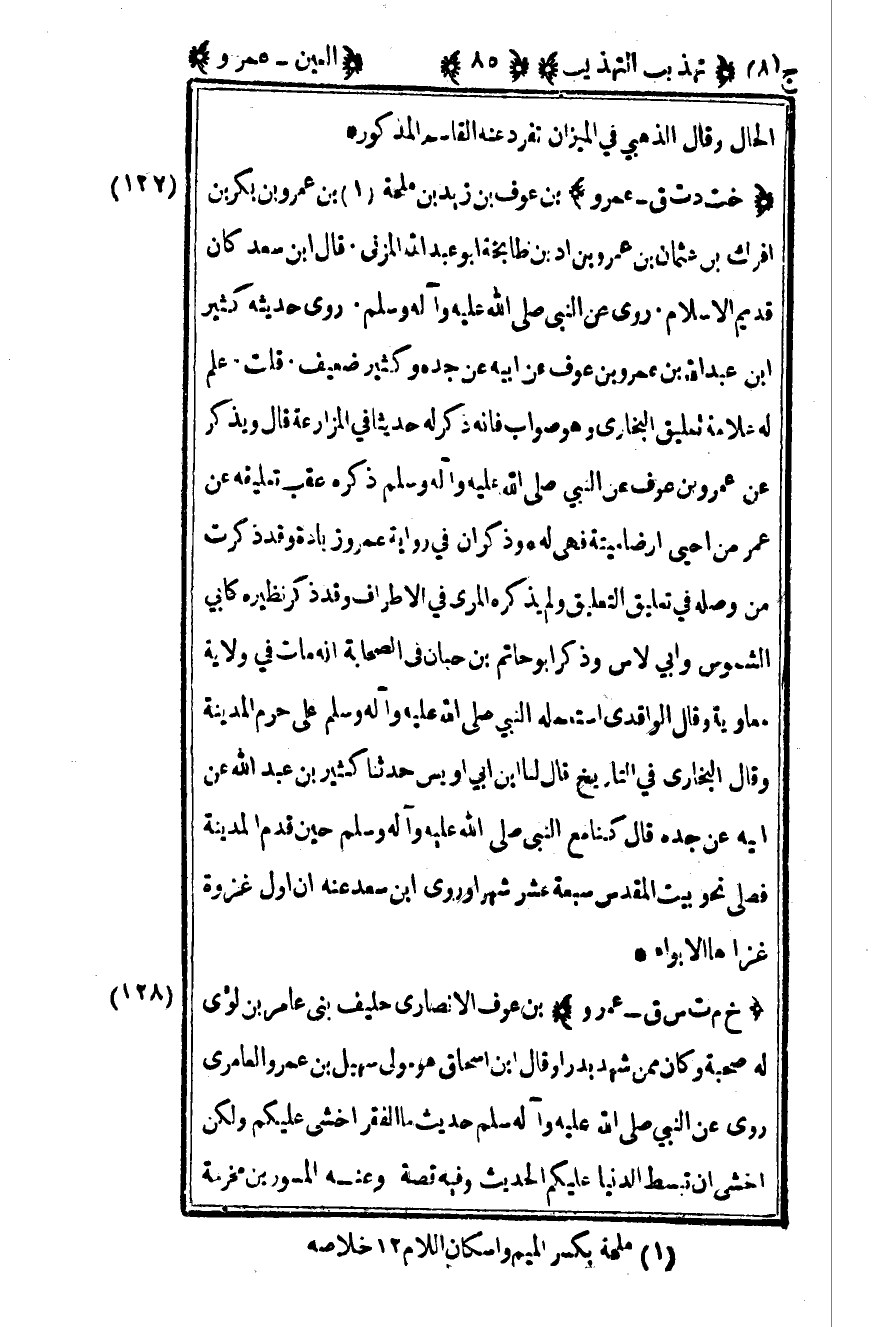 ج (٨) ﴿ تهذيب التهذيب ﴾ ﴿ ٨٥ ﴾ ﴿ العين - عمرو ﴾
الحال وقال الذهبي في الميزان تفرد عنه القاسم المذكور *
(١٢٧) ﴿ خت د ت ق - عمرو ﴾ بن عوف بن زيد بن ملحة (١) بن عمرو بن بكر بن
افرك بن عثمان بن عمرو بن اد بن طابخة ابو عبد الله المزنى . قال ابن سعد كان
قديم الاسلام . روى عن النبي صلى الله عليه وآله وسلم . روى حديثه كثير
ابن عبدالله بن عمرو بن عوف عن ابيه عن جده وكثير ضعيف . قلت . علم
له علامة تعليق البخارى وهو صواب فانه ذكر له حديثا في المزارعة قال ويذكر
عن عمرو بن عوف عن النبي صلى الله عليه وآله وسلم ذكره عقب تعليقه عن
عمر من احيى ارضا ميتة فهى له * وذكر ان في رواية عمرو زيادة وقد ذكرت
من وصله في تعليق التعليق ولم يذكره المزى في الاطراف وقد ذكر نظيره كابي
الشموس وابي لاس وذكر ابو حاتم بن حبان فى الصحابة انه مات في ولاية
معاوية وقال الواقدى استعمله النبي صلى الله عليه وآله وسلم على حرم المدينة
وقال البخارى في التاريخ قال لنا ابن ابي اويس حدثنا كثير بن عبد الله عن
ابيه عن جده قال كنا مع النبي صلى الله عليه وآله وسلم حين قدم المدينة
فصلى نحو بيت المقدس سبعة عشر شهرا وروى ابن سعد عنه ان اول غزوة
غزا ها الابواء *
(١٢٨) ﴿ خ م ت س ق - عمرو ﴾ بن عوف الانصارى حليف بنى عامر بن لوئى
له صحبة وكان ممن شهد بدرا وقال ابن اسحاق هو مولى سهيل بن عمرو العامرى
روى عن النبي صلى الله عليه وآله سلم حديث ما الفقر اخشى عليكم ولكن
اخشى ان تبسط الدنيا عليكم الحديث وفيه قصة وعنه المسور بن مخرمة
(١) ملحة بكسر الميم واسكان اللام ١٢ خلاصه